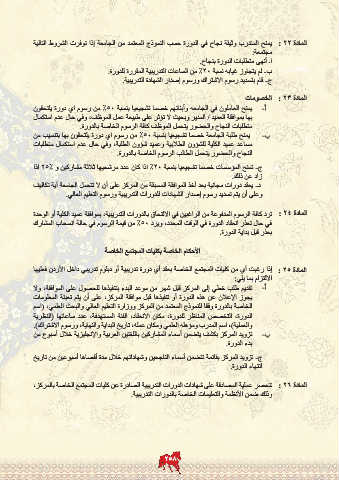 المادة ٢٢ : يمنح المتدرب وثيقة نجاح في الدورة حسب النموذج المعتمد من الجامعة إذا توفرت الشروط التالية
مجتمعة:
أ. أنهى متطلبات الدورة بنجاح.
ب. لم يتجاوز غيابه نسبة ٢٠٪ من الساعات التدريبية المقررة للدورة.
ج. قام بتسديد رسوم الاشتراك ورسوم إصدار الشهادة التدريبية.
المادة ٢٣ : الخصومات
أ- يمنح العاملون في الجامعة وأبنائهم خصما تشجيعيا بنسبة ٥٠٪ من رسوم أي دورة يلتحقون
بها بموافقة العميد / المدير وبحيث لا تؤثر على طبيعة عمل الموظف، وفي حال عدم استكمال
متطلبات النجاح والحضور يتحمل الموظف كافة الرسوم الخاصة بالدورة.
ب- يمنح طلبة الجامعة خصما تشجيعيا بنسبة ٥٠٪ من رسوم أي دورة يلتحقون بها بتنسيب من
مساعد عميد الكلية للشؤون الطلابية وعميد شؤون الطلبة، وفي حال عدم استكمال متطلبات
النجاح والحضور يتحمل الطالب الرسوم الخاصة بالدورة.
ج. تمنح المؤسسات خصما تشجيعيا بنسبة ٢٠٪ اذا كان عدد مرشحيها ثلاثة مشاركين و ٢٥٪ اذا
زاد عن ذلك.
د. يعقد دورات مجانية بعد أخذ الموافقة المسبقة من المركز على أن لا تتحمل الجامعة أية تكاليف
وعلى أن يتم تسديد رسوم إصدار الشهادات للدورات التدريبية ورسوم التعليم العالي.
المادة ٢٤ : ترد كافة الرسوم المدفوعة من الراغبين في الالتحاق بالدورات التدريبية، بموافقة عميد الكلية أو الوحدة
في حال تعذر انعقاد الدورة في الوقت المحدد، ويرد ٥٠٪ من قيمة الرسوم في حالة انسحاب المشارك
بعذر قبل بداية الدورة.
الأحكام الخاصة بكليات المجتمع الخاصة
المادة ٢٥ : إذا رغبت أي من كليات المجتمع الخاصة بعقد أي دورة تدريبية أو دبلوم تدريبي داخل الأردن فعليها
الالتزام بما يلي:
أ- تقديم طلب خطي إلى المركز قبل شهر من موعد البدء بتنفيذها للحصول على الموافقة، ولا
يجوز الإعلان عن هذه الدورة أو تنفيذها قبل موافقة المركز، على أن يتم تعبئة المعلومات
الخاصة بالدورة وفقا للنموذج المعتمد من المركز ووزارة التعليم العالي والبحث العلمي، (اسم
الدورة، التخصص المناظر للدورة، مكان الانعقاد، الفئة المستهدفة، عدد ساعاتها (النظرية
والعملية)، اسم المدرب ومؤهله العلمي ومكان عمله، تاريخ البداية والنهاية، ورسوم الاشتراك).
ب- تزويد المركز بكشف يتضمن أسماء المشاركين باللغتين العربية والإنجليزية خلال أسبوع من
بدء الدورة.
ج. تزويد المركز بقائمة تتضمن أسماء الناجحين وشهاداتهم خلال مدة أقصاها أسبوعين من تاريخ
انتهاء الدورة.
المادة ٢٦ : تنحصر عملية المصادقة على شهادات الدورات التدريبية الصادرة عن كليات المجتمع الخاصة بالمركز،
وذلك ضمن الأنظمة والتعليمات الخاصة بالدورات التدريبية.
٢٥٨